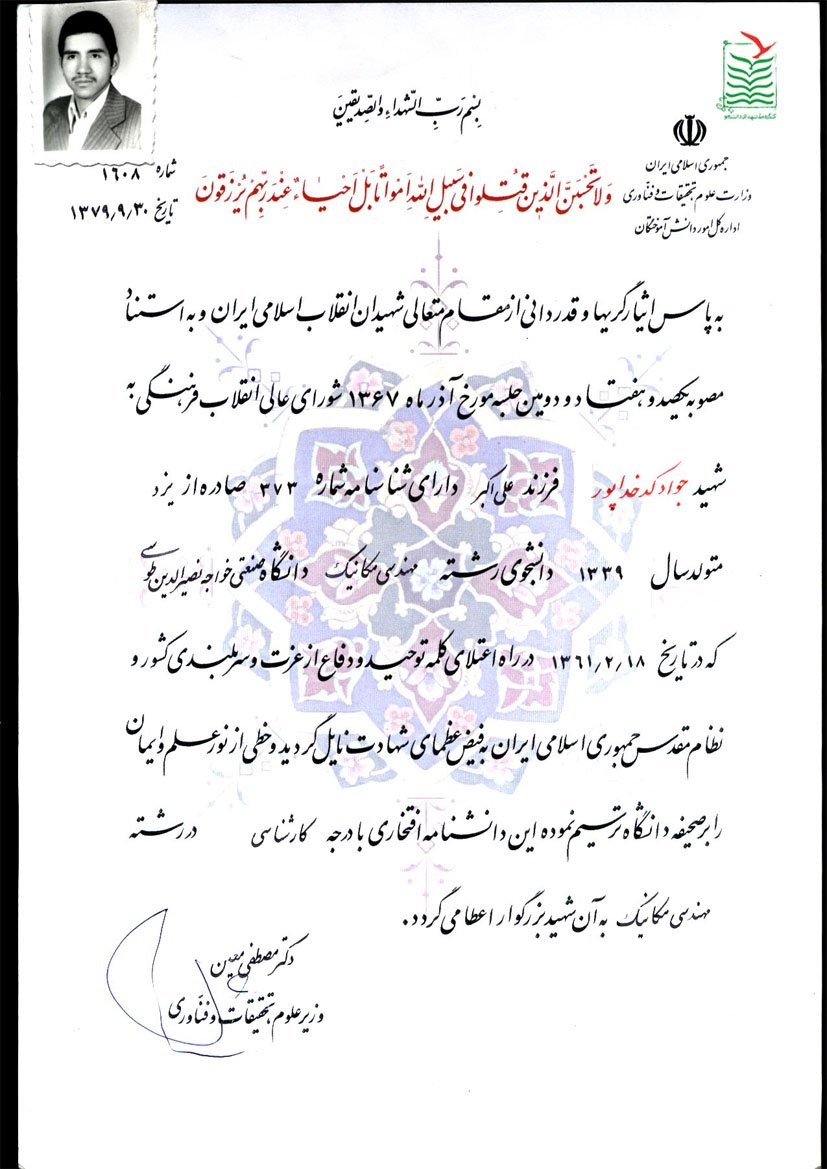 بسم رب الشهداء والصدیقین
جمهوری اسلامی ایران
وزارت علوم، تحقیقات و فنآوری
اداره کل امور دانش آموختگان
شماره ۱۶۰۸
تاریخ ۱۳۷۹٫۹٫۳۰
وَلاتَحْسَبَنَّ الَّذینَ قُتِلوا فی سَبیلِ اللهِ اَمْواتًا بَلْ اَحْیاءٌ عِنْدَ رَبِّهِمْ یُرْزَقُونَ
به پاس ایثارگریها و قدردانی از مقام متعالی شهیدان انقلاب اسلامی ایران و به استناد
مصوبه یکصد و هفتاد و دومین جلسه مورخ آذر ماه ۱۳۶۷ شورای عالی انقلاب فرهنگی به
شهید جواد کدخداپور فرزند علی اکبر دارای شناسنامه شماره ۳۷۳ صادره از یزد
متولد سال ۱۳۳۹ دانشجوی رشته مهندسی مکانیک دانشگاه صنعتی خواجه نصیرالدین طوسی
که در تاریخ ۱۳۶۱٫۲٫۱۸ در راه اعتلای کلمه توحید و دفاع از عزت و سربلندی کشور و
نظام مقدس جمهوری اسلامی ایران به فیض عظمای شهادت نایل گردید و خطی از نور علم و ایمان
را بر صحیفه دانشگاه ترسیم نموده این دانشنامه افتخاری با درجه کارشناسی در رشته
مهندسی مکانیک به آن شهید بزرگوار اعطا می گردد.
دکتر مصطفی معین
وزیر علوم، تحقیقات و فنآوری